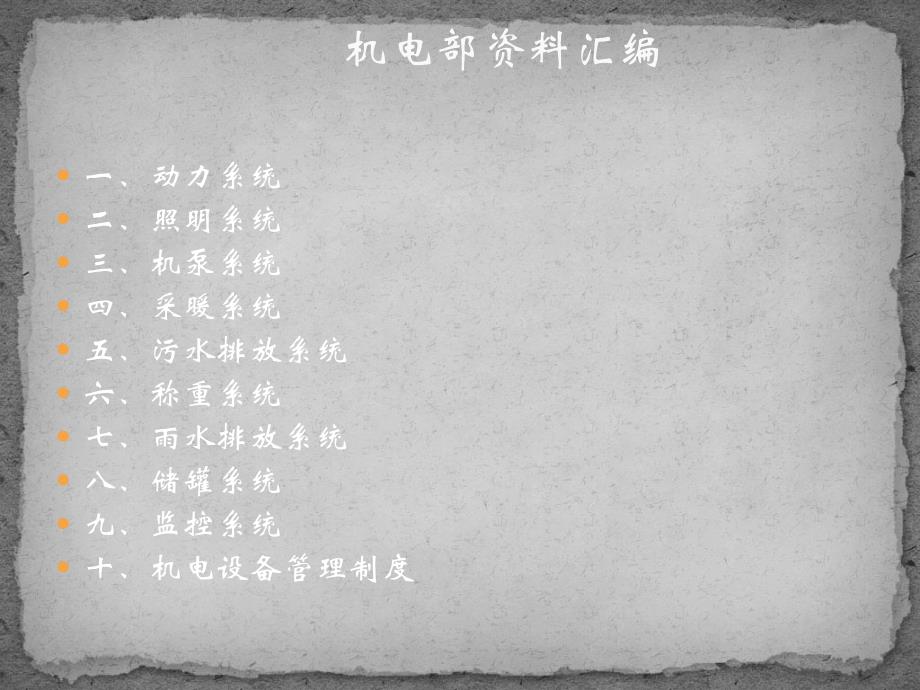 机电部资料汇编
一、动力系统
二、照明系统
三、机泵系统
四、采暖系统
五、污水排放系统
六、称重系统
七、雨水排放系统
八、储罐系统
九、监控系统
十、机电设备管理制度